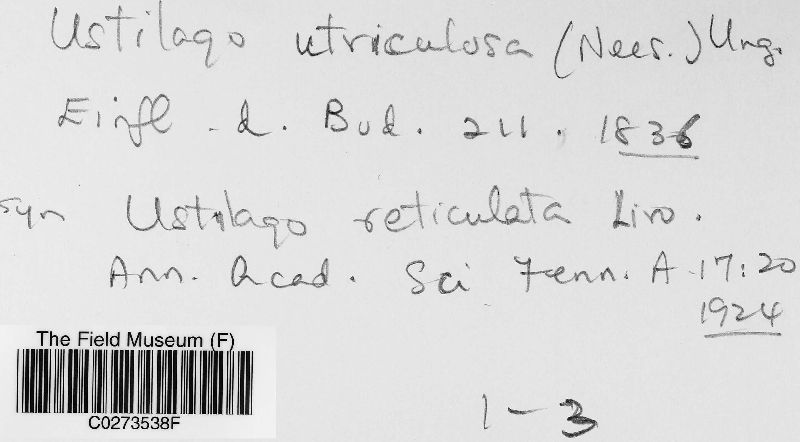 Ustilago utriculosa (Nees.) Ung.
Einfl. d. Bod. 211. 1836
syn Ustilago reticulata Liro.
Ann. Acad. Sci Fenn. A 17:20
1924
The Field Museum (F)
C0273538F
1-3